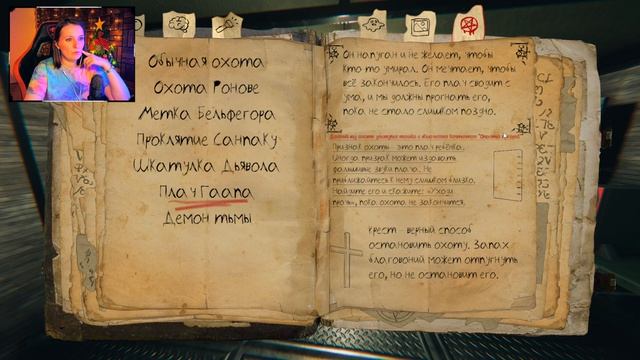 Обычная охота
Охота Ронове
Метка Бельфегора
Проклятие Санпаку
Шкатулка Дьявола
Плач Гаапа
Демон тьмы
Он напуган и не желает, чтобы
кто-то умирал. Он мечтает, чтобы
всё закончилось. Его плач сводит с
ума, и мы должны прогнать его,
пока не стало слишком поздно.
Признак охоты - это плач ребёнка.
Иногда призрак может издавать
фальшивые звуки плача. Не
приближайтесь к нему слишком близко.
Найдите его и скажите: «Уходи
прочь», пока охота не закончится.
крест - верный способ
остановить охоту. Запах
благовоний может отпугнуть
его, но не остановит его.